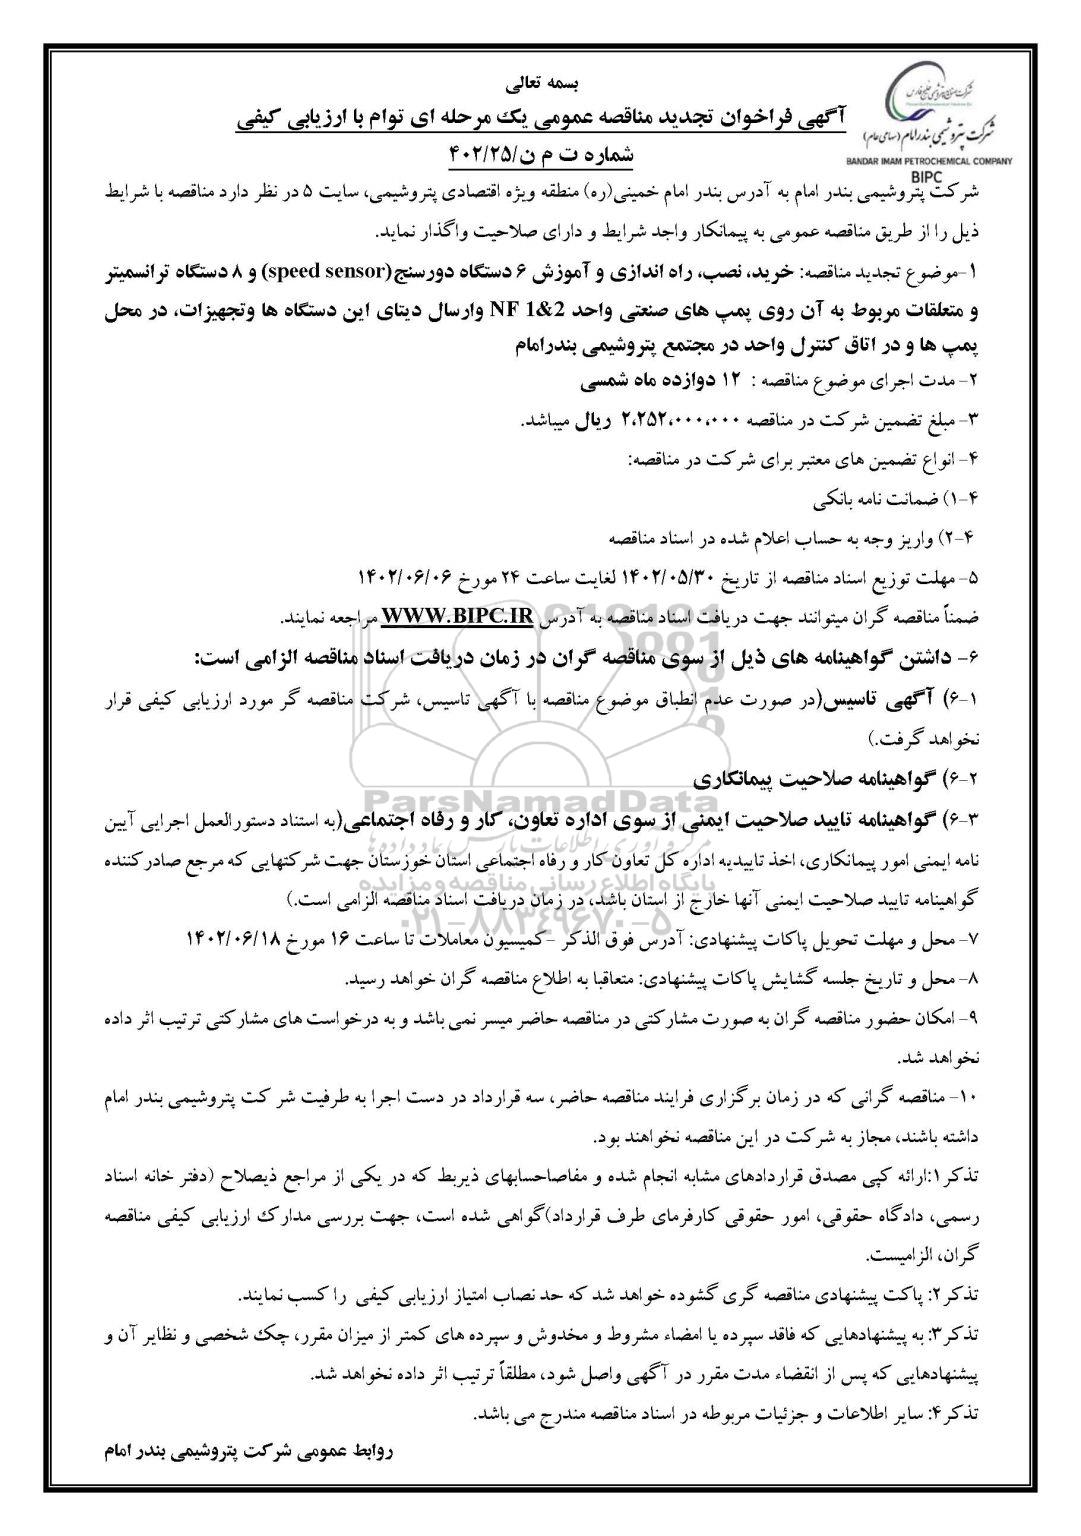 بسمه تعالی
آگهی فراخوان تجدید مناقصه عمومی یک مرحله ای توام با ارزیابی کیفی
شماره ت م ن/۴۰۲/۲۵
شرکت پتروشیمی بندرامام (سهامی عام)
BANDAR IMAM PETROCHEMICAL COMPANY
BIPC
شرکت پتروشیمی بندر امام به آدرس بندر امام خمینی(ره) منطقه ویژه اقتصادی پتروشیمی، سایت ۵ در نظر دارد مناقصه با شرایط
ذیل را از طریق مناقصه عمومی به پیمانکار واجد شرایط و دارای صلاحیت واگذار نماید.
۱-موضوع تجدید مناقصه: خرید، نصب، راه اندازی و آموزش ۶ دستگاه دورسنج(speed sensor) و ۸ دستگاه ترانسمیتر
و متعلقات مربوط به آن روی پمپ های صنعتی واحد NF 1&2 وارسال دیتای این دستگاه ها وتجهیزات، در محل
پمپ ها و در اتاق کنترل واحد در مجتمع پتروشیمی بندرامام
۲- مدت اجرای موضوع مناقصه : ۱۲ دوازده ماه شمسی
۳- مبلغ تضمین شرکت در مناقصه ۲،۲۵۲،۰۰۰،۰۰۰ ریال میباشد.
۴- انواع تضمین های معتبر برای شرکت در مناقصه:
۴-۱) ضمانت نامه بانکی
۴-۲) واریز وجه به حساب اعلام شده در اسناد مناقصه
۵- مهلت توزیع اسناد مناقصه از تاریخ ۱۴۰۲/۰۵/۳۰ لغایت ساعت ۲۴ مورخ ۱۴۰۲/۰۶/۰۶
ضمناً مناقصه گران میتوانند جهت دریافت اسناد مناقصه به آدرس WWW.BIPC.IR مراجعه نمایند.
۶- داشتن گواهینامه های ذیل از سوی مناقصه گران در زمان دریافت اسناد مناقصه الزامی است:
۶-۱) آگهی تاسیس(در صورت عدم انطباق موضوع مناقصه با آگهی تاسیس، شرکت مناقصه گر مورد ارزیابی کیفی قرار
نخواهد گرفت.)
۶-۲) گواهینامه صلاحیت پیمانکاری
ParsNamadData
۶-۳) گواهینامه تایید صلاحیت ایمنی از سوی اداره تعاون، کار و رفاه اجتماعی(به استناد دستورالعمل اجرایی آیین
نامه ایمنی امور پیمانکاری، اخذ تاییدیه اداره کل تعاون کار و رفاه اجتماعی استان خوزستان جهت شرکتهایی که مرجع صادرکننده
پایگاه اطلاع رسانی مناقصه و مزایده
گواهینامه تایید صلاحیت ایمنی آنها خارج از استان باشد، در زمان دریافت اسناد مناقصه الزامی است.)
۰۲۱-۸۸۳۴۹۶۷۰-۵
۷- محل و مهلت تحویل پاکات پیشنهادی: آدرس فوق الذکر -کمیسیون معاملات تا ساعت ۱۶ مورخ ۱۴۰۲/۰۶/۱۸
۸- محل و تاریخ جلسه گشایش پاکات پیشنهادی: متعاقبا به اطلاع مناقصه گران خواهد رسید.
۹- امکان حضور مناقصه گران به صورت مشارکتی در مناقصه حاضر میسر نمی باشد و به درخواست های مشارکتی ترتیب اثر داده
نخواهد شد.
۱۰- مناقصه گرانی که در زمان برگزاری فرایند مناقصه حاضر، سه قرارداد در دست اجرا به طرفیت شر کت پتروشیمی بندر امام
داشته باشند، مجاز به شرکت در این مناقصه نخواهند بود.
تذکر۱:ارائه کپی مصدق قراردادهای مشابه انجام شده و مفاصاحسابهای ذیربط که در یکی از مراجع ذیصلاح (دفتر خانه اسناد
رسمی، دادگاه حقوقی، امور حقوقی کارفرمای طرف قرارداد)گواهی شده است، جهت بررسی مدارک ارزیابی کیفی مناقصه
گران، الزامیست.
تذکر۲: پاکت پیشنهادی مناقصه گری گشوده خواهد شد که حد نصاب امتیاز ارزیابی کیفی را کسب نمایند.
تذکر۳: به پیشنهادهایی که فاقد سپرده یا امضاء مشروط و مخدوش و سپرده های کمتر از میزان مقرر، چک شخصی و نظایر آن و
پیشنهادهایی که پس از انقضاء مدت مقرر در آگهی واصل شود، مطلقاً ترتیب اثر داده نخواهد شد.
تذکر۴: سایر اطلاعات و جزئیات مربوطه در اسناد مناقصه مندرج می باشد.
روابط عمومی شرکت پتروشیمی بندر امام